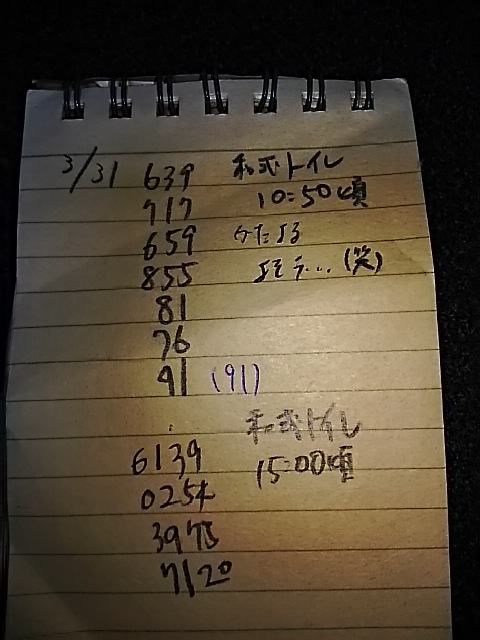 3/31 639 和式トイレ
717 10:50頃
659 かたよる
855 よそう…(笑)
81
76
91 (91)
和式トイレ
6139 15:00頃
025
3975
7120